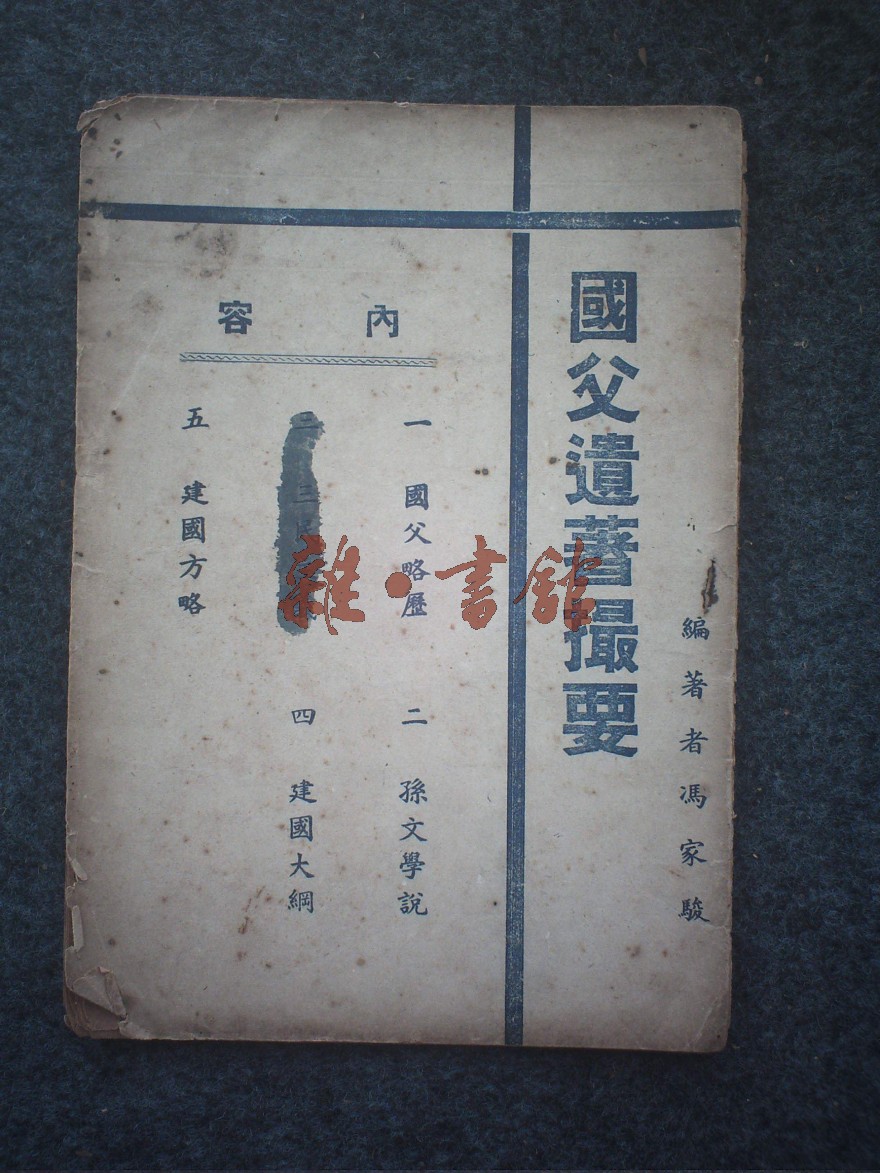 國父遺著撮要
編著者馮家駿
內容
一 國父略歷
二 孫文學說
三 三民
四 建國大綱
五 建國方略
雜·書館